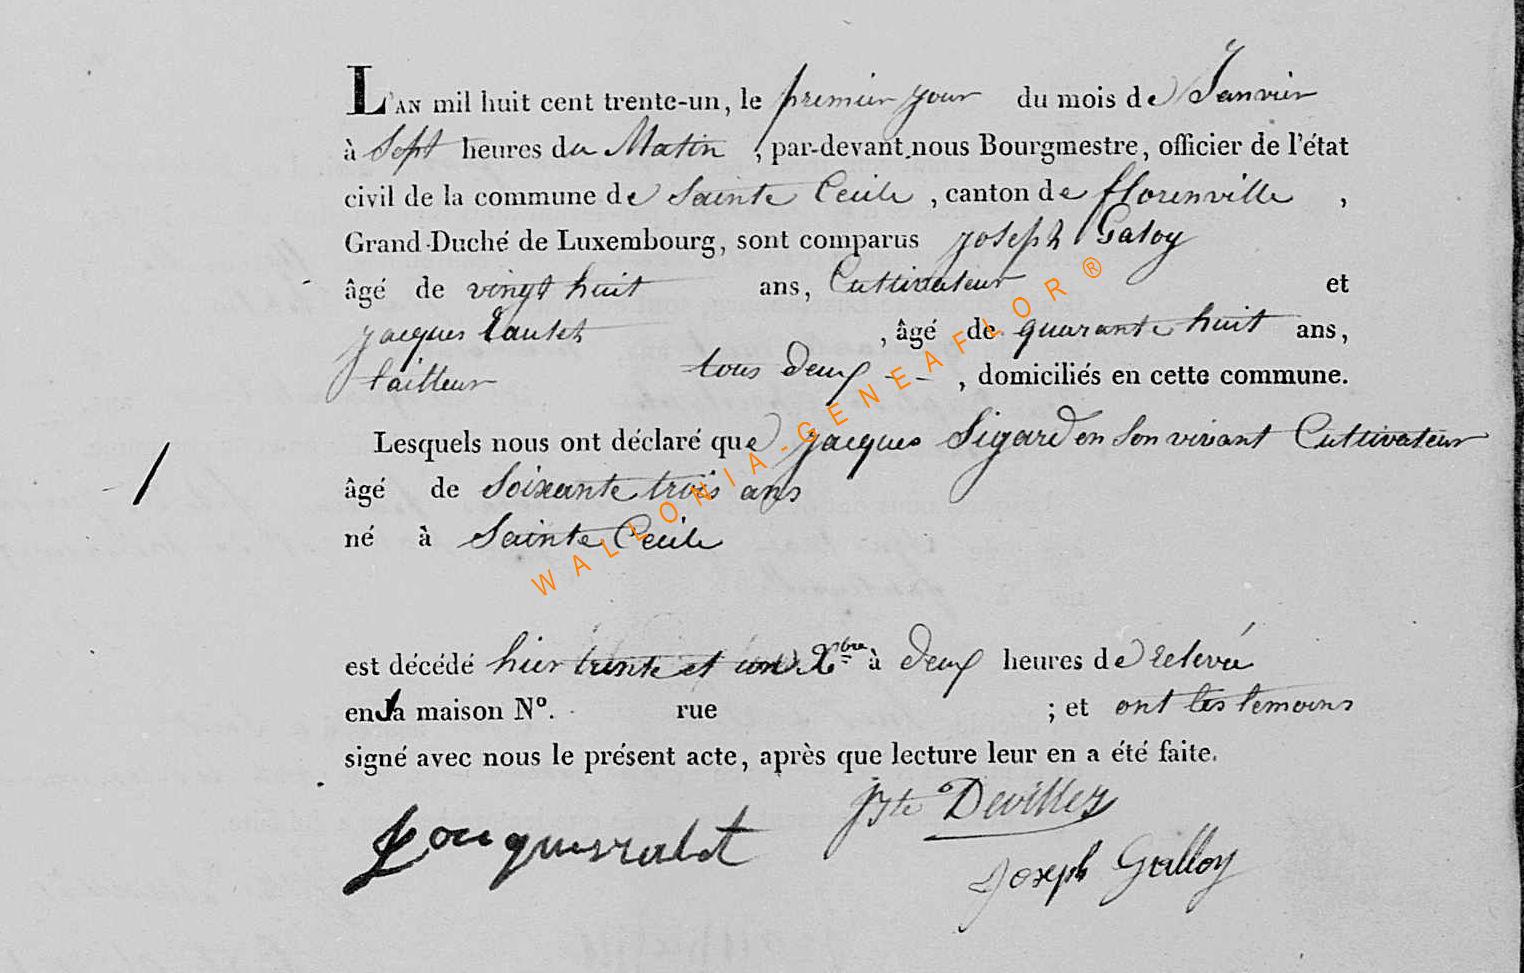 L'AN mil huit cent trente-un, le premier jour du mois de Janvier
à Sept heures du Matin, par-devant nous Bourgmestre, officier de l'état
civil de la commune de Sainte Cecile, canton de florenville,
Grand-Duché de Luxembourg, sont comparus joseph Galoy
âgé de vingt huit ans, Cultivateur et
jacques, âgé de quarante huit ans,
tailleur tous deux - -, domiciliés en cette commune.
Lesquels nous ont déclaré que jacques Sigard en son vivant Cultivateur
âgé de Soixante trois ans
né à Sainte Cecile
est décédé hier trente et un Xbre à deux heures de relevée
en sa maison N°. rue ; et ont les temoins
signé avec nous le présent acte, après que lecture leur en a été faite.
Jste Devillez
Joseph Galloy
WALLONIA-GENEAFLOR®